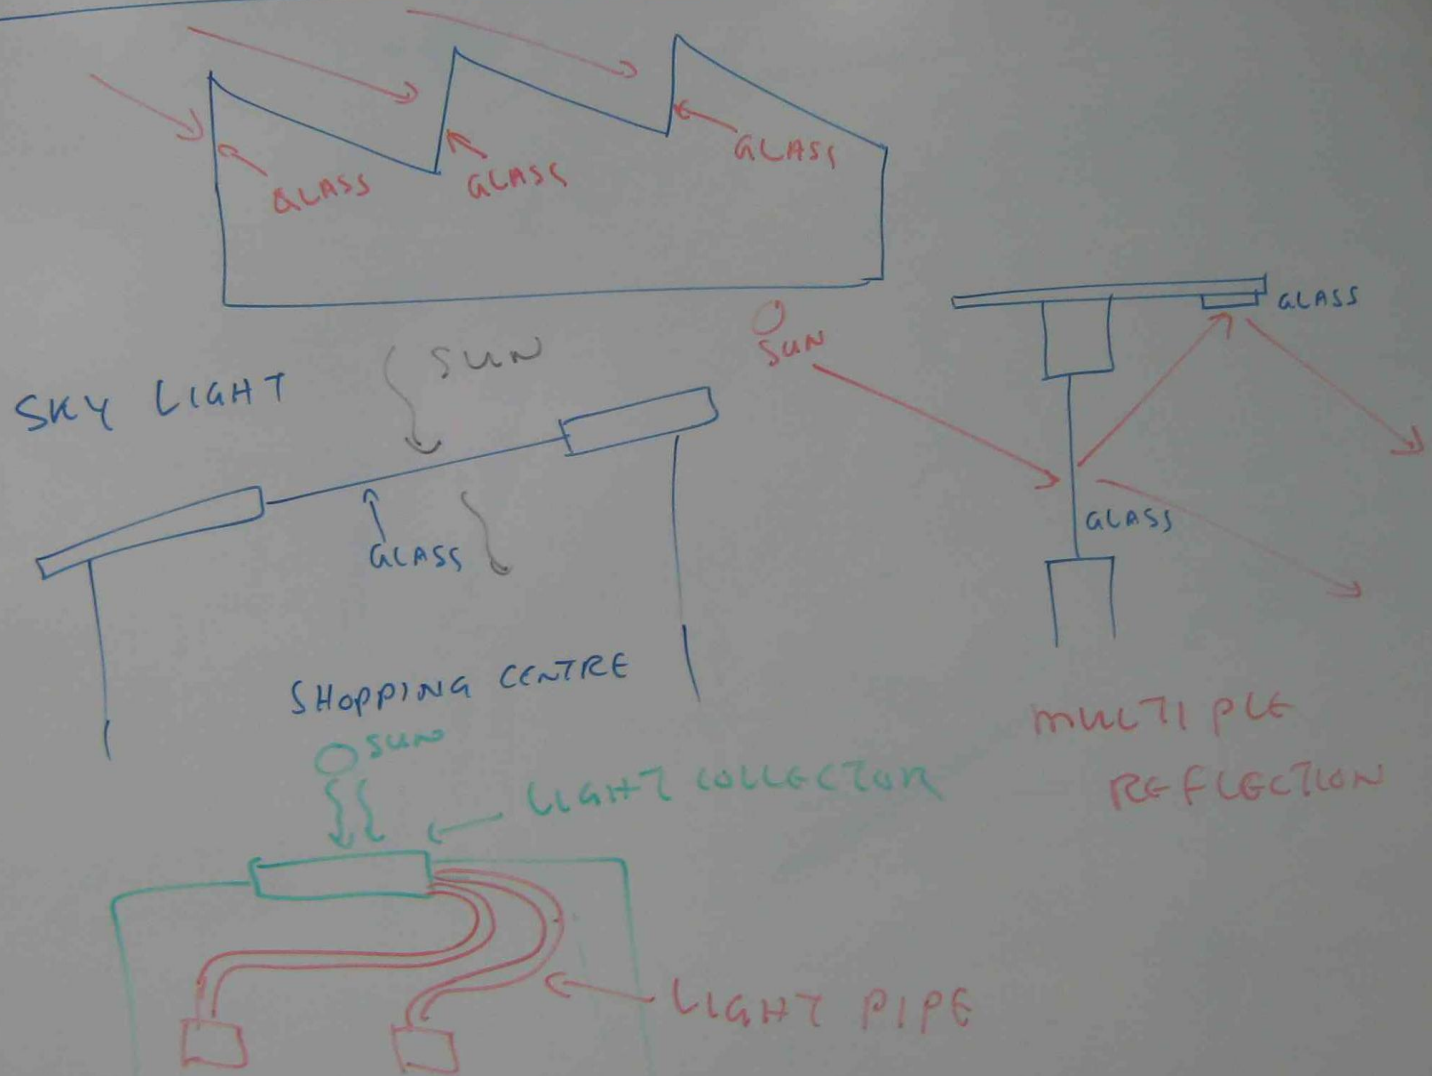 GLASS
GLASS
GLASS
GLASS
SUN
SUN
SKY LIGHT
GLASS
GLASS
SHOPPING CENTRE
MULTIPLE
REFLECTION
SUN
LIGHT COLLECTOR
LIGHT PIPE